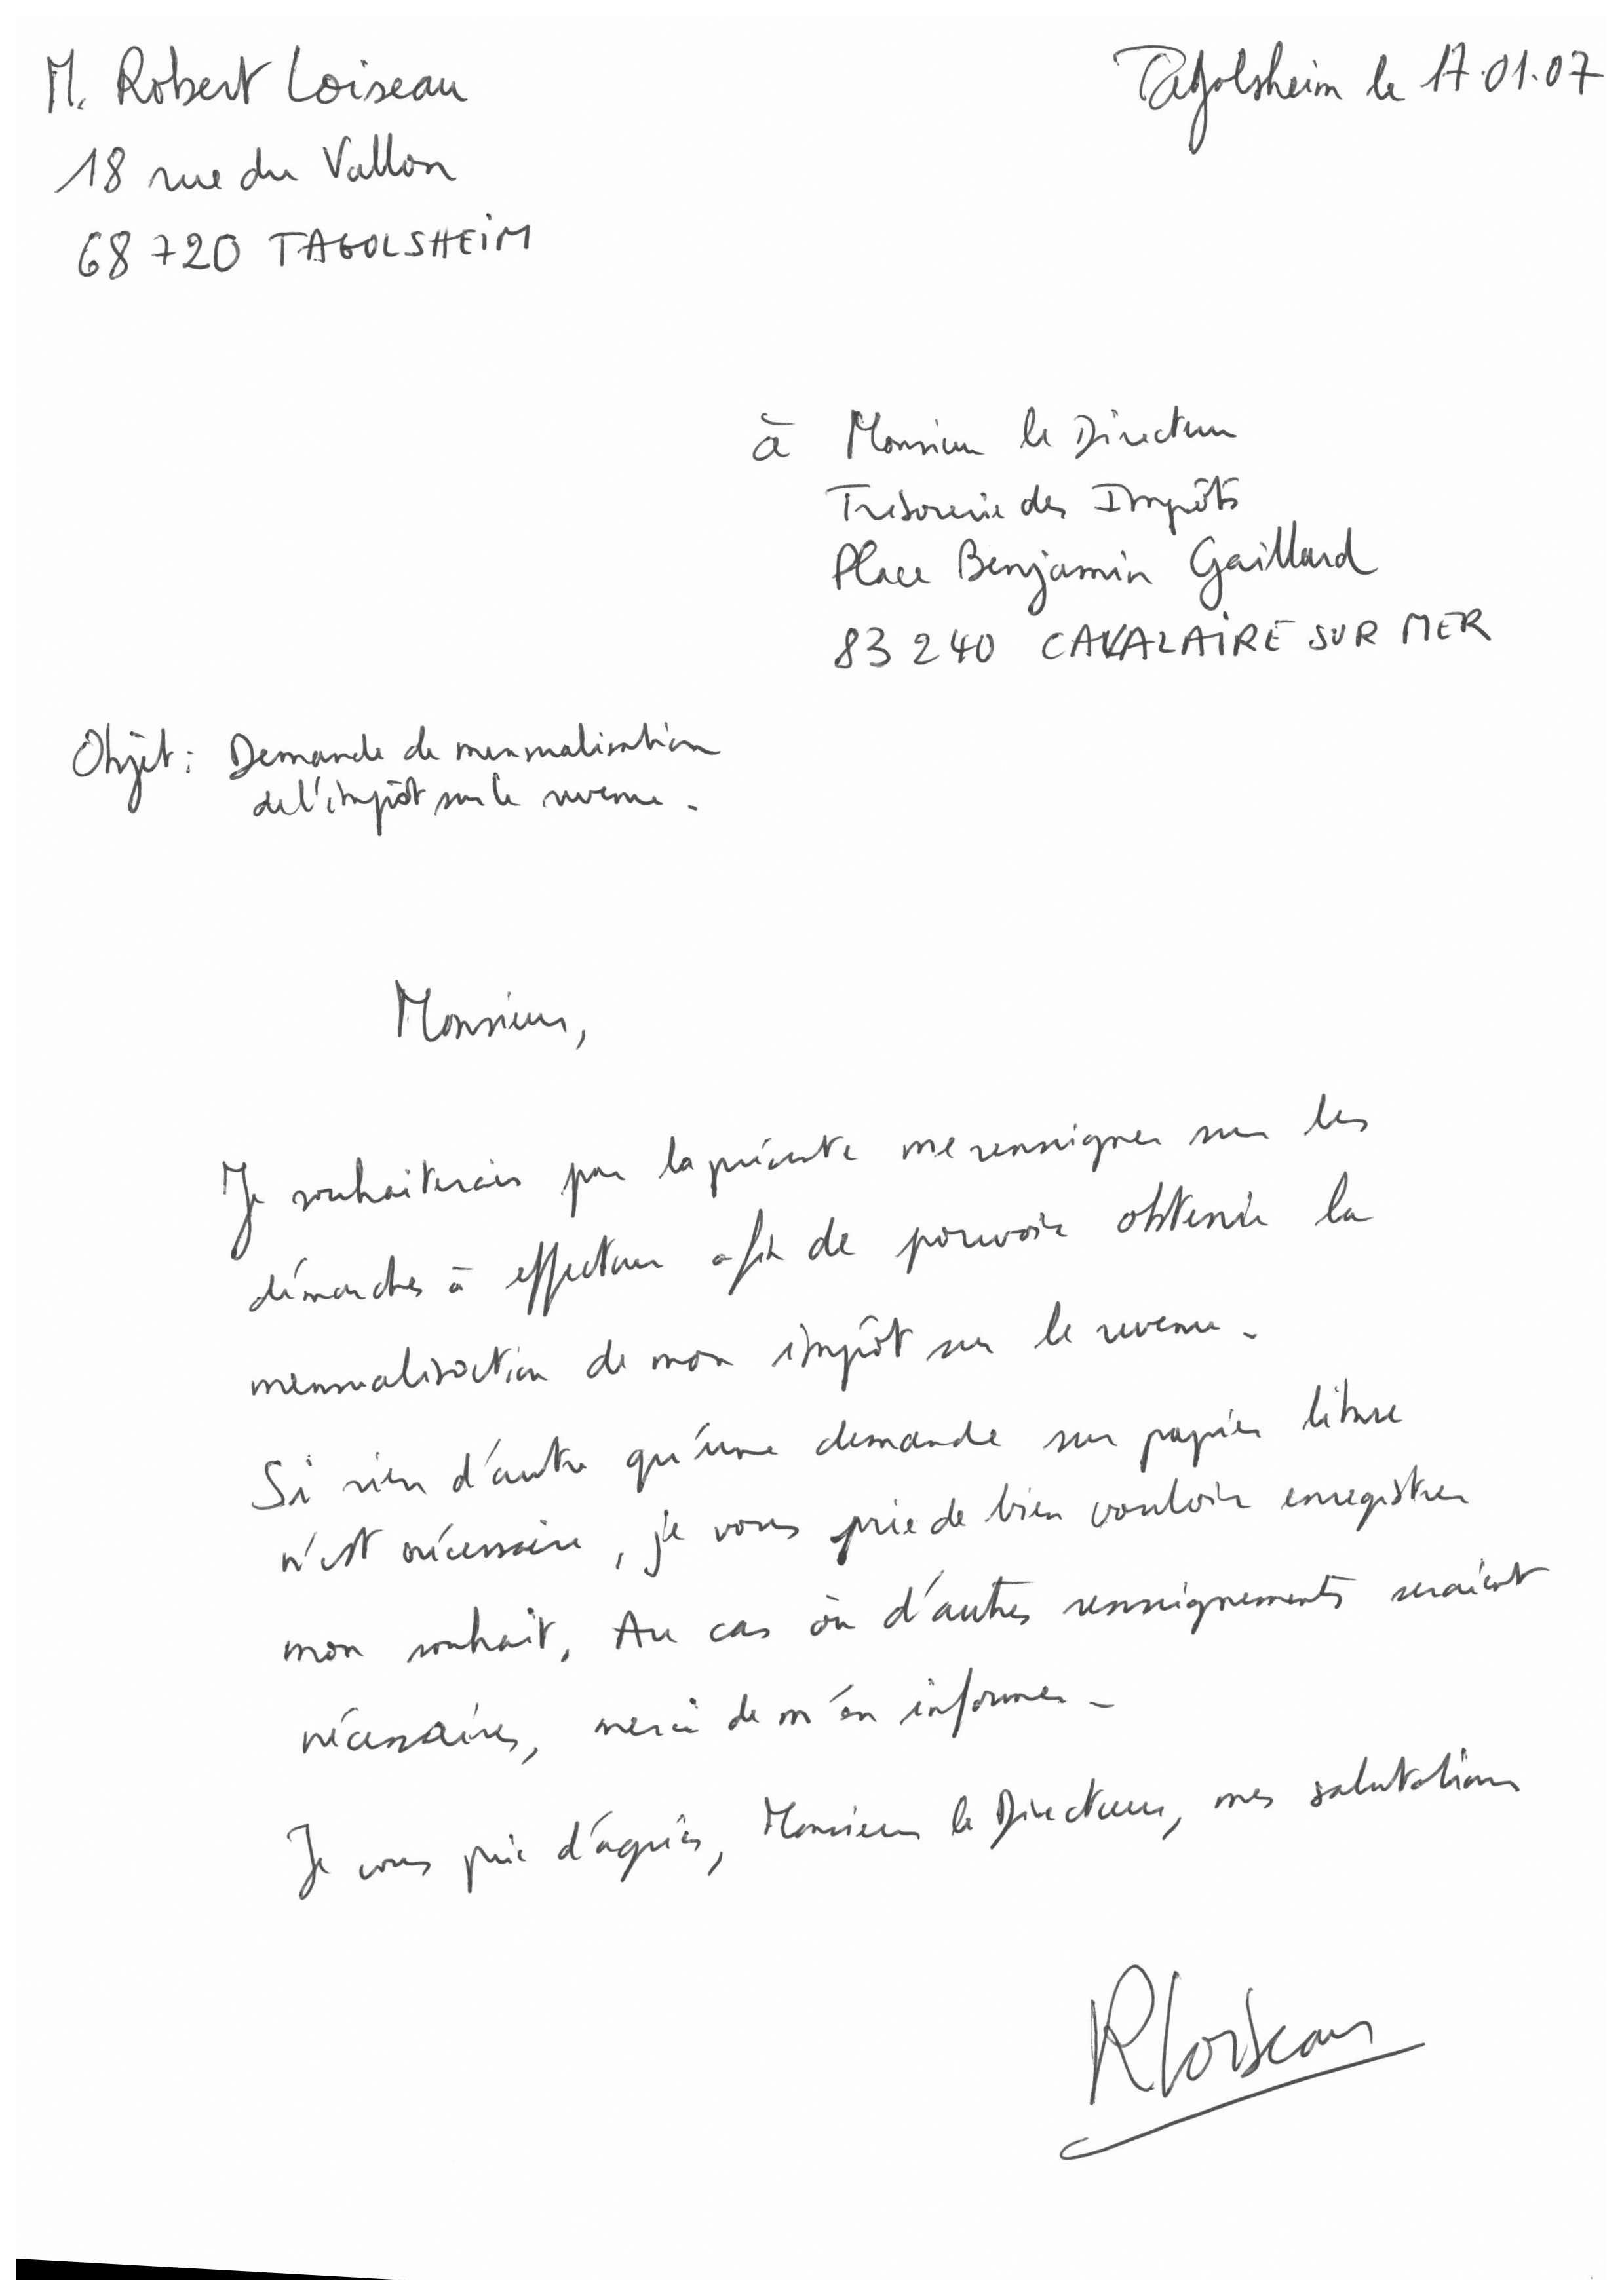 M. Robert Loiseau
Tagolsheim le 17.01.07
18 rue du Vallon
68720 TAGOLSHEIM
à Monsieur le Directeur
Trésorerie des Impôts
Place Benjamin Gaillard
83240 CAVALAIRE SUR MER
Objet : Demande de mensualisation
de l'impôt sur le revenu.
Monsieur,
Je souhaiterais par la présente me renseigner sur les
démarches à effectuer afin de pouvoir obtenir la
mensualisation de mon impôt sur le revenu.
Si rien d'autre qu'une demande sur papier libre
n'est nécessaire, je vous prie de bien vouloir enregistrer
mon souhait. Au cas où d'autres renseignements seraient
nécessaires, merci de m'en informer.
Je vous prie d'agréer, Monsieur le Directeur, mes salutations
RLoiseau